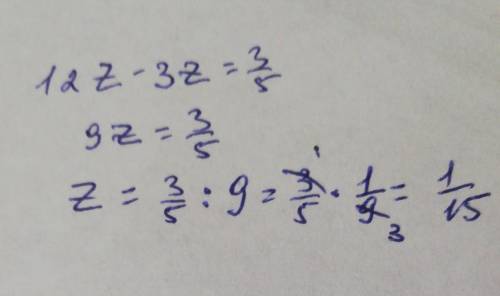 12z - 3z = 3/5
9z = 3/5
z = 3/5 : 9 = 3/5 · 1/9 = 1/15
1
3